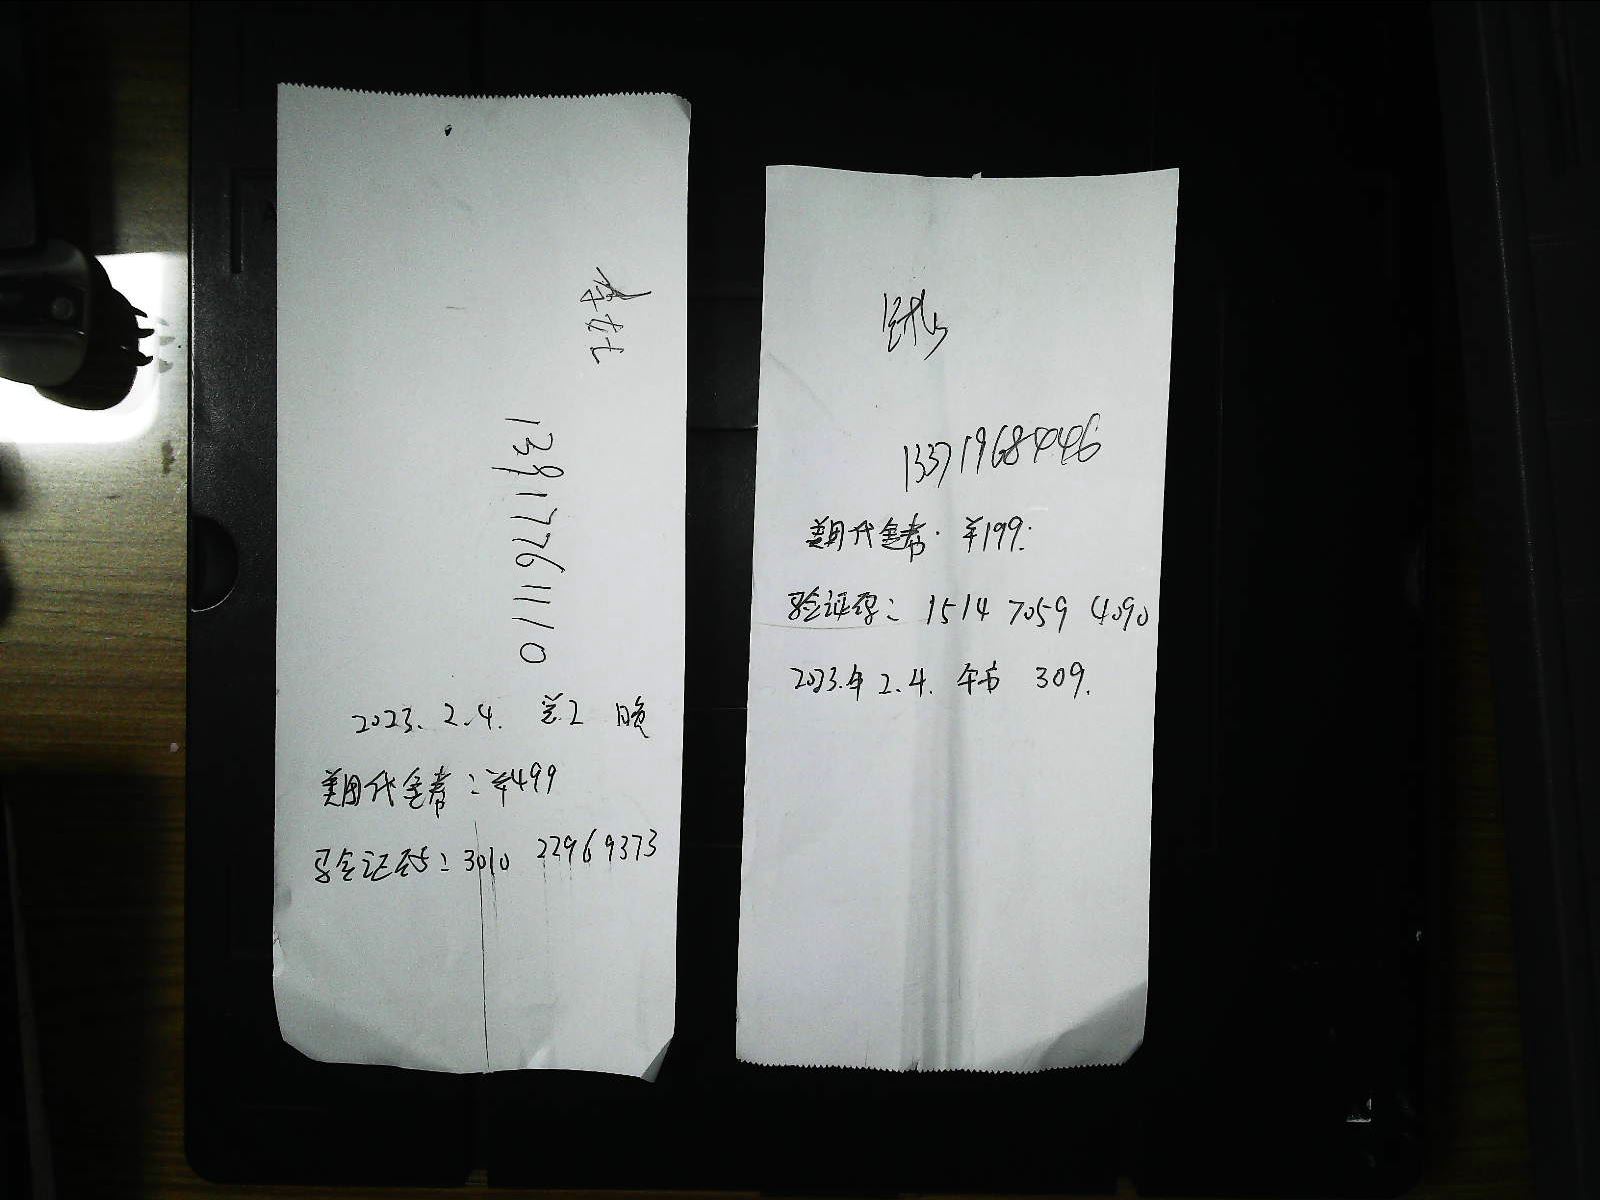 女士
13917761110
2023.2.4. 兰2 晚
美团代金券：￥499
验证码：3010 22969373
13371968446
美团代金券. ￥199.
验证码：1514 7059 4090
2023.年 2.4. 午市 309.